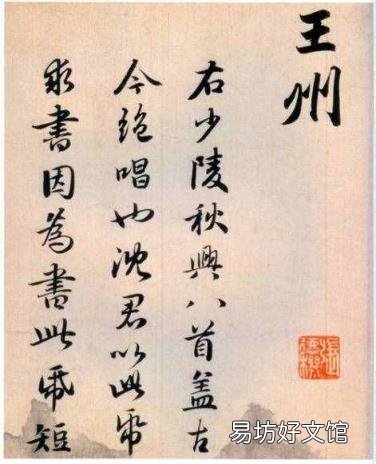 王州
右少陵秋興八首盖古
今絕唱也沈君以此帋
求書因為書此帋短
張德樑
易坊好文馆